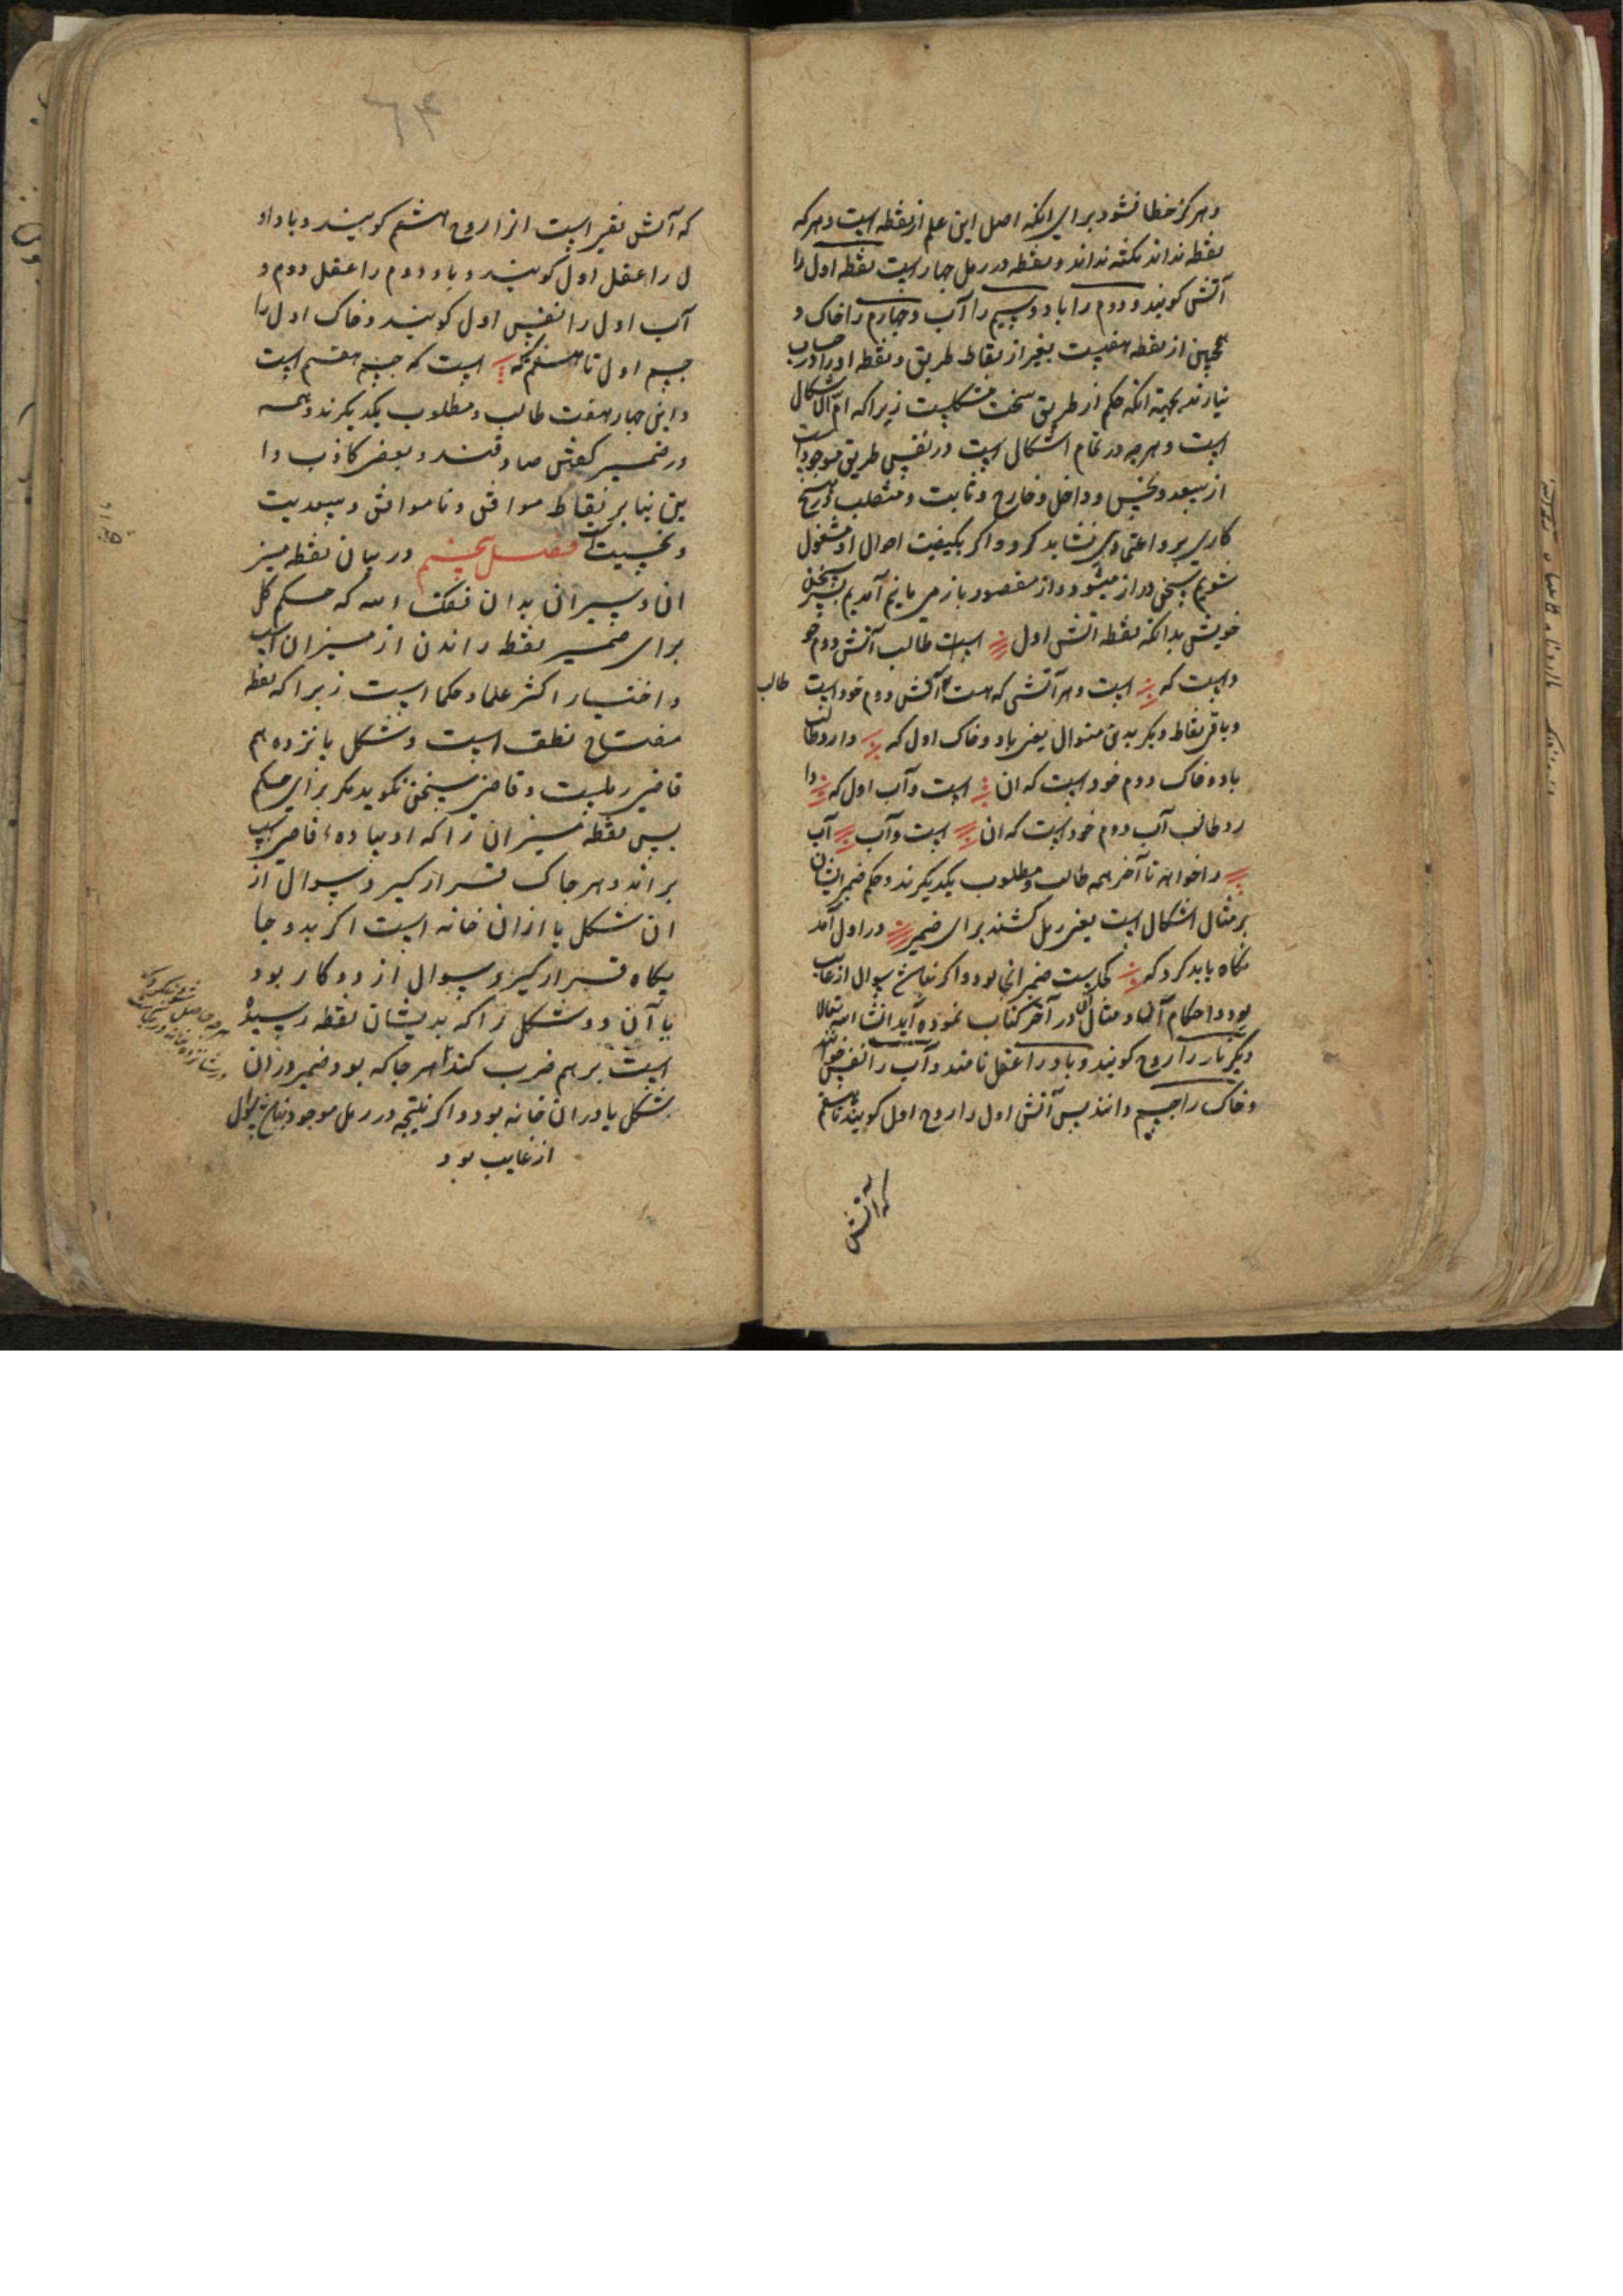 و هرکز خطا نشود برای انکه اصل این علم از نقطه است و هر که
نقطه نداند نکته نداند و نقطه در رمل چهار است نقطه اول را
آتش کویند و دوم را باد و سیم را آب و چهارم را خاک و
همچنین از نقطه هفتست بغیر از نقاط طریق و نقطه او را در حساب
نیارند بجهة انکه حکم از طریق سخت مشکلست زیرا که ام الاشکال
است و هرچه در تمام اشکال است در نفس طریق موجود است
از سعد و نحس و داخل و خارج و ثابت و منقلب و هیچ
کاری برو اعتمادی نشاید کرد و اکر بکیفیت احوال او مشغول
شویم سخن دراز میشود و از مقصود باز می مانیم آمدیم بسر سخن
خویش بدانکه نقطه آتش اول است طالب آتش دوم خو
داست که است و هر آتشی که هست آتش دوم خود است
طالب
و باقی نقاط دیکر بدین منوال یعنی باد و خاک اول که دارد طالب
باد و خاک دوم خود است که ان است و آب اول که دا
رد طالب آب دوم خود است که ان است و آب آب
را خواهد تا آخر همه طالب و مطلوب یکدیکرند و حکم ضمیر ایشان
بر مثال اشکال است یعنی رمل کشند برای ضمیر در اول آمد
نکاه باید کرد که کجاست ضمیر آن بود و اکر نباشد سوال از غایب
بود و احکام آن و مثال آن در آخر کتاب نموده آید انشا الله تعالا
دیکر نار را روح کویند و باد را عقل نامند و آب را نفس خوانند
و خاک را جسم دانند پس آتش اول را روح اول کویند تا هشتم
که آتش
۶۴
که آتش نقی است انرا روح هشتم کویند و باد او
ل را عقل اول کویند و باد دوم را عقل دوم و
آب اول را نفس اول کویند و خاک اول را
جسم اول تا هشتم که است که جسم هشتم است
و این چهار هفت طالب و مطلوب یکدیکرند و همه
در ضمیر کفتن صادقند و بعضی کاذب و ا
ین بنا بر نقاط موافق و ناموافق و سعدیت
و نحسیت است فصل پنجم در بیان نقطه میز
ان و سیر ان بدان وفقک الله که حکم کل
برای ضمیر نقطه راندن از میزان است
و اختیار اکثر علما و حکما است زیرا که نقطه
مفتاح نطق است و شکل پانزدهم
قاضی رملست و قاضی سخن نکوید مکر برای حکم
پس نقطه میزان را که او بیاده قاضی است
براند و هر جا که قرار کیرد سوال از
ان شکل یا ازان خانه است اکر بدو جا
یکاه قرار کیرد سوال از دو کار بود
یا آن دو شکل را که بدیشان نقطه رسیده
است بر هم ضرب کند هر جا که بود ضمیر در ان
شکل یا در ان خانه بود و اکر نتیجه در رمل موجود نباشد سوال
از غایب بود